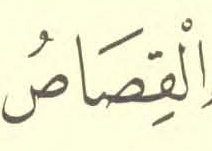 الْقِصَاصُ